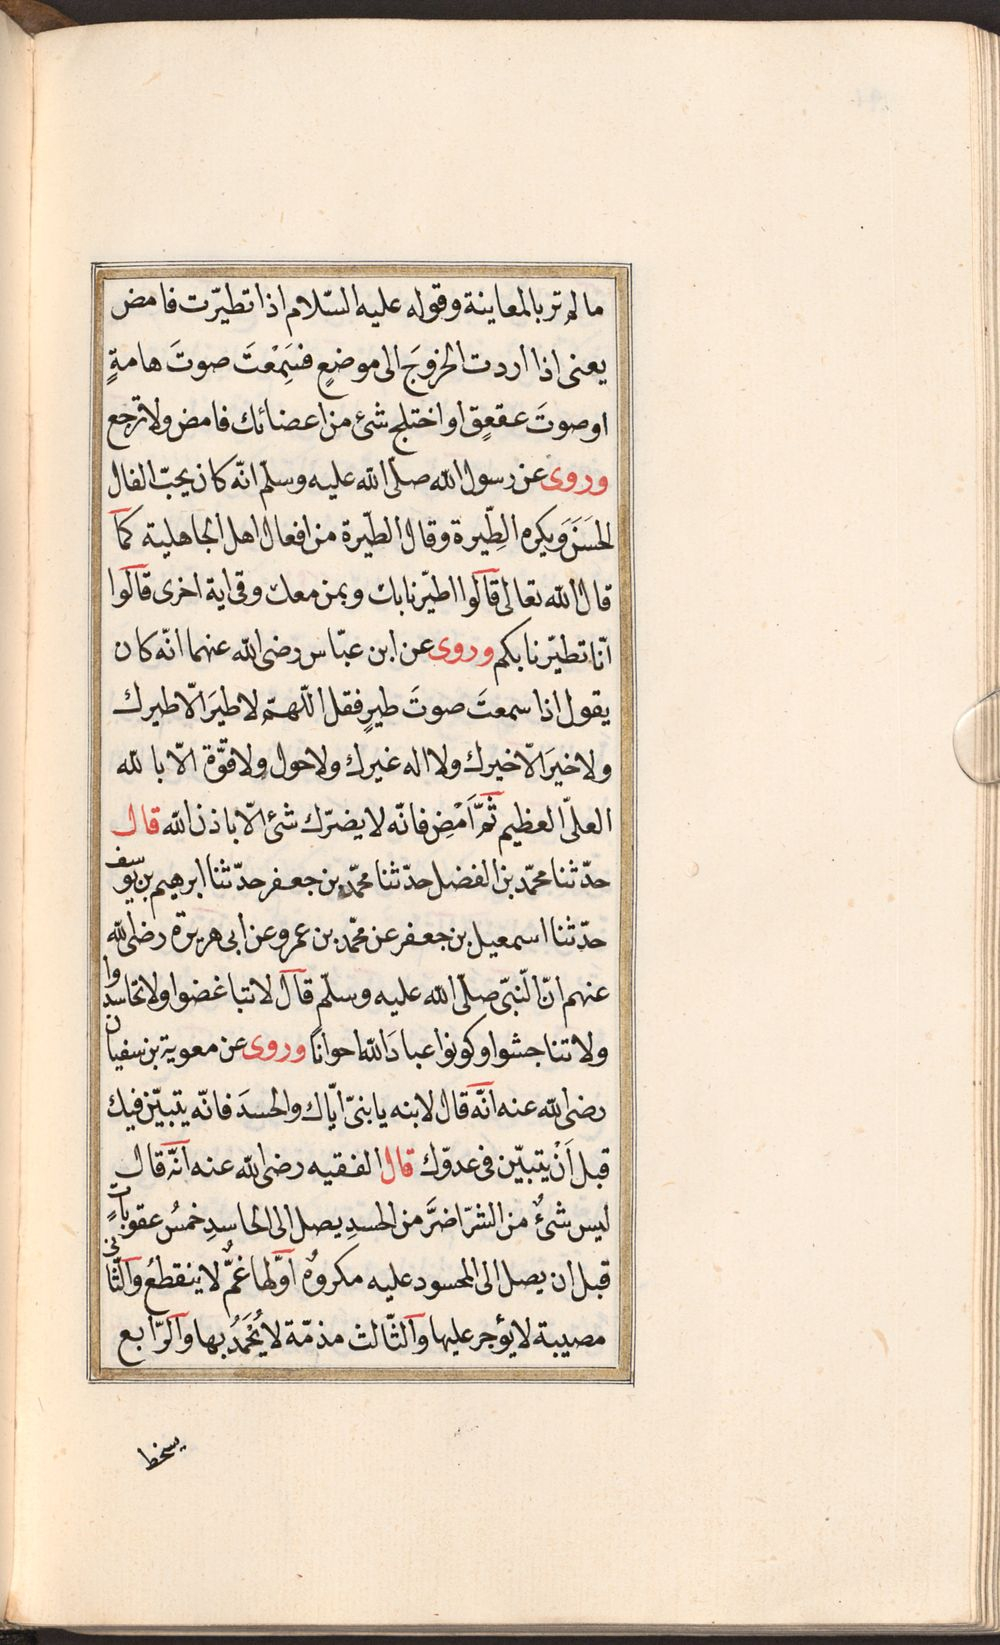 ما لم تر بالمعاينة وقوله عليه السّلام اذا تطيّرت فامض
يعنى اذا اردت الخروجَ الى موضعٍ فسَمِعْتَ صوتَ هامةٍ
او صوتَ عقعقٍ او اختلج شئ من اعضائك فامض ولا ترجع
وروى عن رسول الله صلّى الله عليه وسلّم انّه كان يحبّ الفال
الحَسَنَ ويكره الطِّيرة وقال الطّيرة من افعال اهل الجاهلية كما
قال الله تعالى قالوا اطيّرنا بك وبمن معك وفى اية اخرى قالوا
انّا تطيّرنا بكم وروى عن ابن عبّاس رضى الله عنهما انّه كان
يقول اذا سمعتَ صوتَ طيرٍ فقل اللّهمّ لا طيرَ الّا طيرك
ولا خيرَ الّا خيرك ولا اله غيرك ولا حول ولا قوّة الّا بالله
العلىّ العظيم ثمّ اَمْضِ فانّه لا يضرّك شئ الّا باذن الله قال
حدّثنا محمّد بن الفضل حدّثنا محمّد بن جعفر حدّثنا ابرهيم بن يوسف
حدّثنا اسمعيل بن جعفر عن محمّد بن عمرو عن ابى هريرة رضى الله
عنهم انّ النّبىّ صلّى الله عليه وسلّم قال لا تتباغضوا ولا تحاسدوا
ولا تناجشوا وكونوا عبادَ الله احوانًا وروى عن معوية بن سفيان
رضى الله عنه انّه قال لابنه يا بنىّ ايّاك والحسدَ فانّه يتبيّن فيك
قبل اَنْ يتبيّن فى عدوّك قال الفقيه رضى الله عنه انّه قال
ليس شئٌ من الشرّ اضرَّ من الحسدِ يصل الى الحاسدِ خمسُ عقوباتٍ
قبل ان يصل الى المحسود عليه مكروهٌ اوّلها غمٌّ لا ينقطعُ والثّانى
مصيبة لا يؤجر عليها والثّالث مذمّة لا يُحْمَدُ بها والرّابع
يسخط